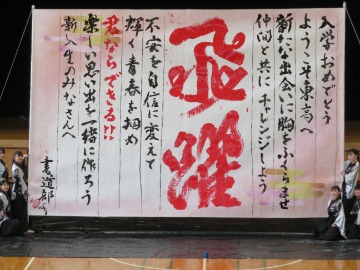 入学おめでとう
ようこそ東高へ
新たな出会いに胸をふくらませ
仲間と共にチャレンジしよう
飛躍
不安を自信に変えて
輝く青春を掴め
君ならできる!!
楽しい思い出を一緒に作ろう
新入生のみなさんへ
書道部より